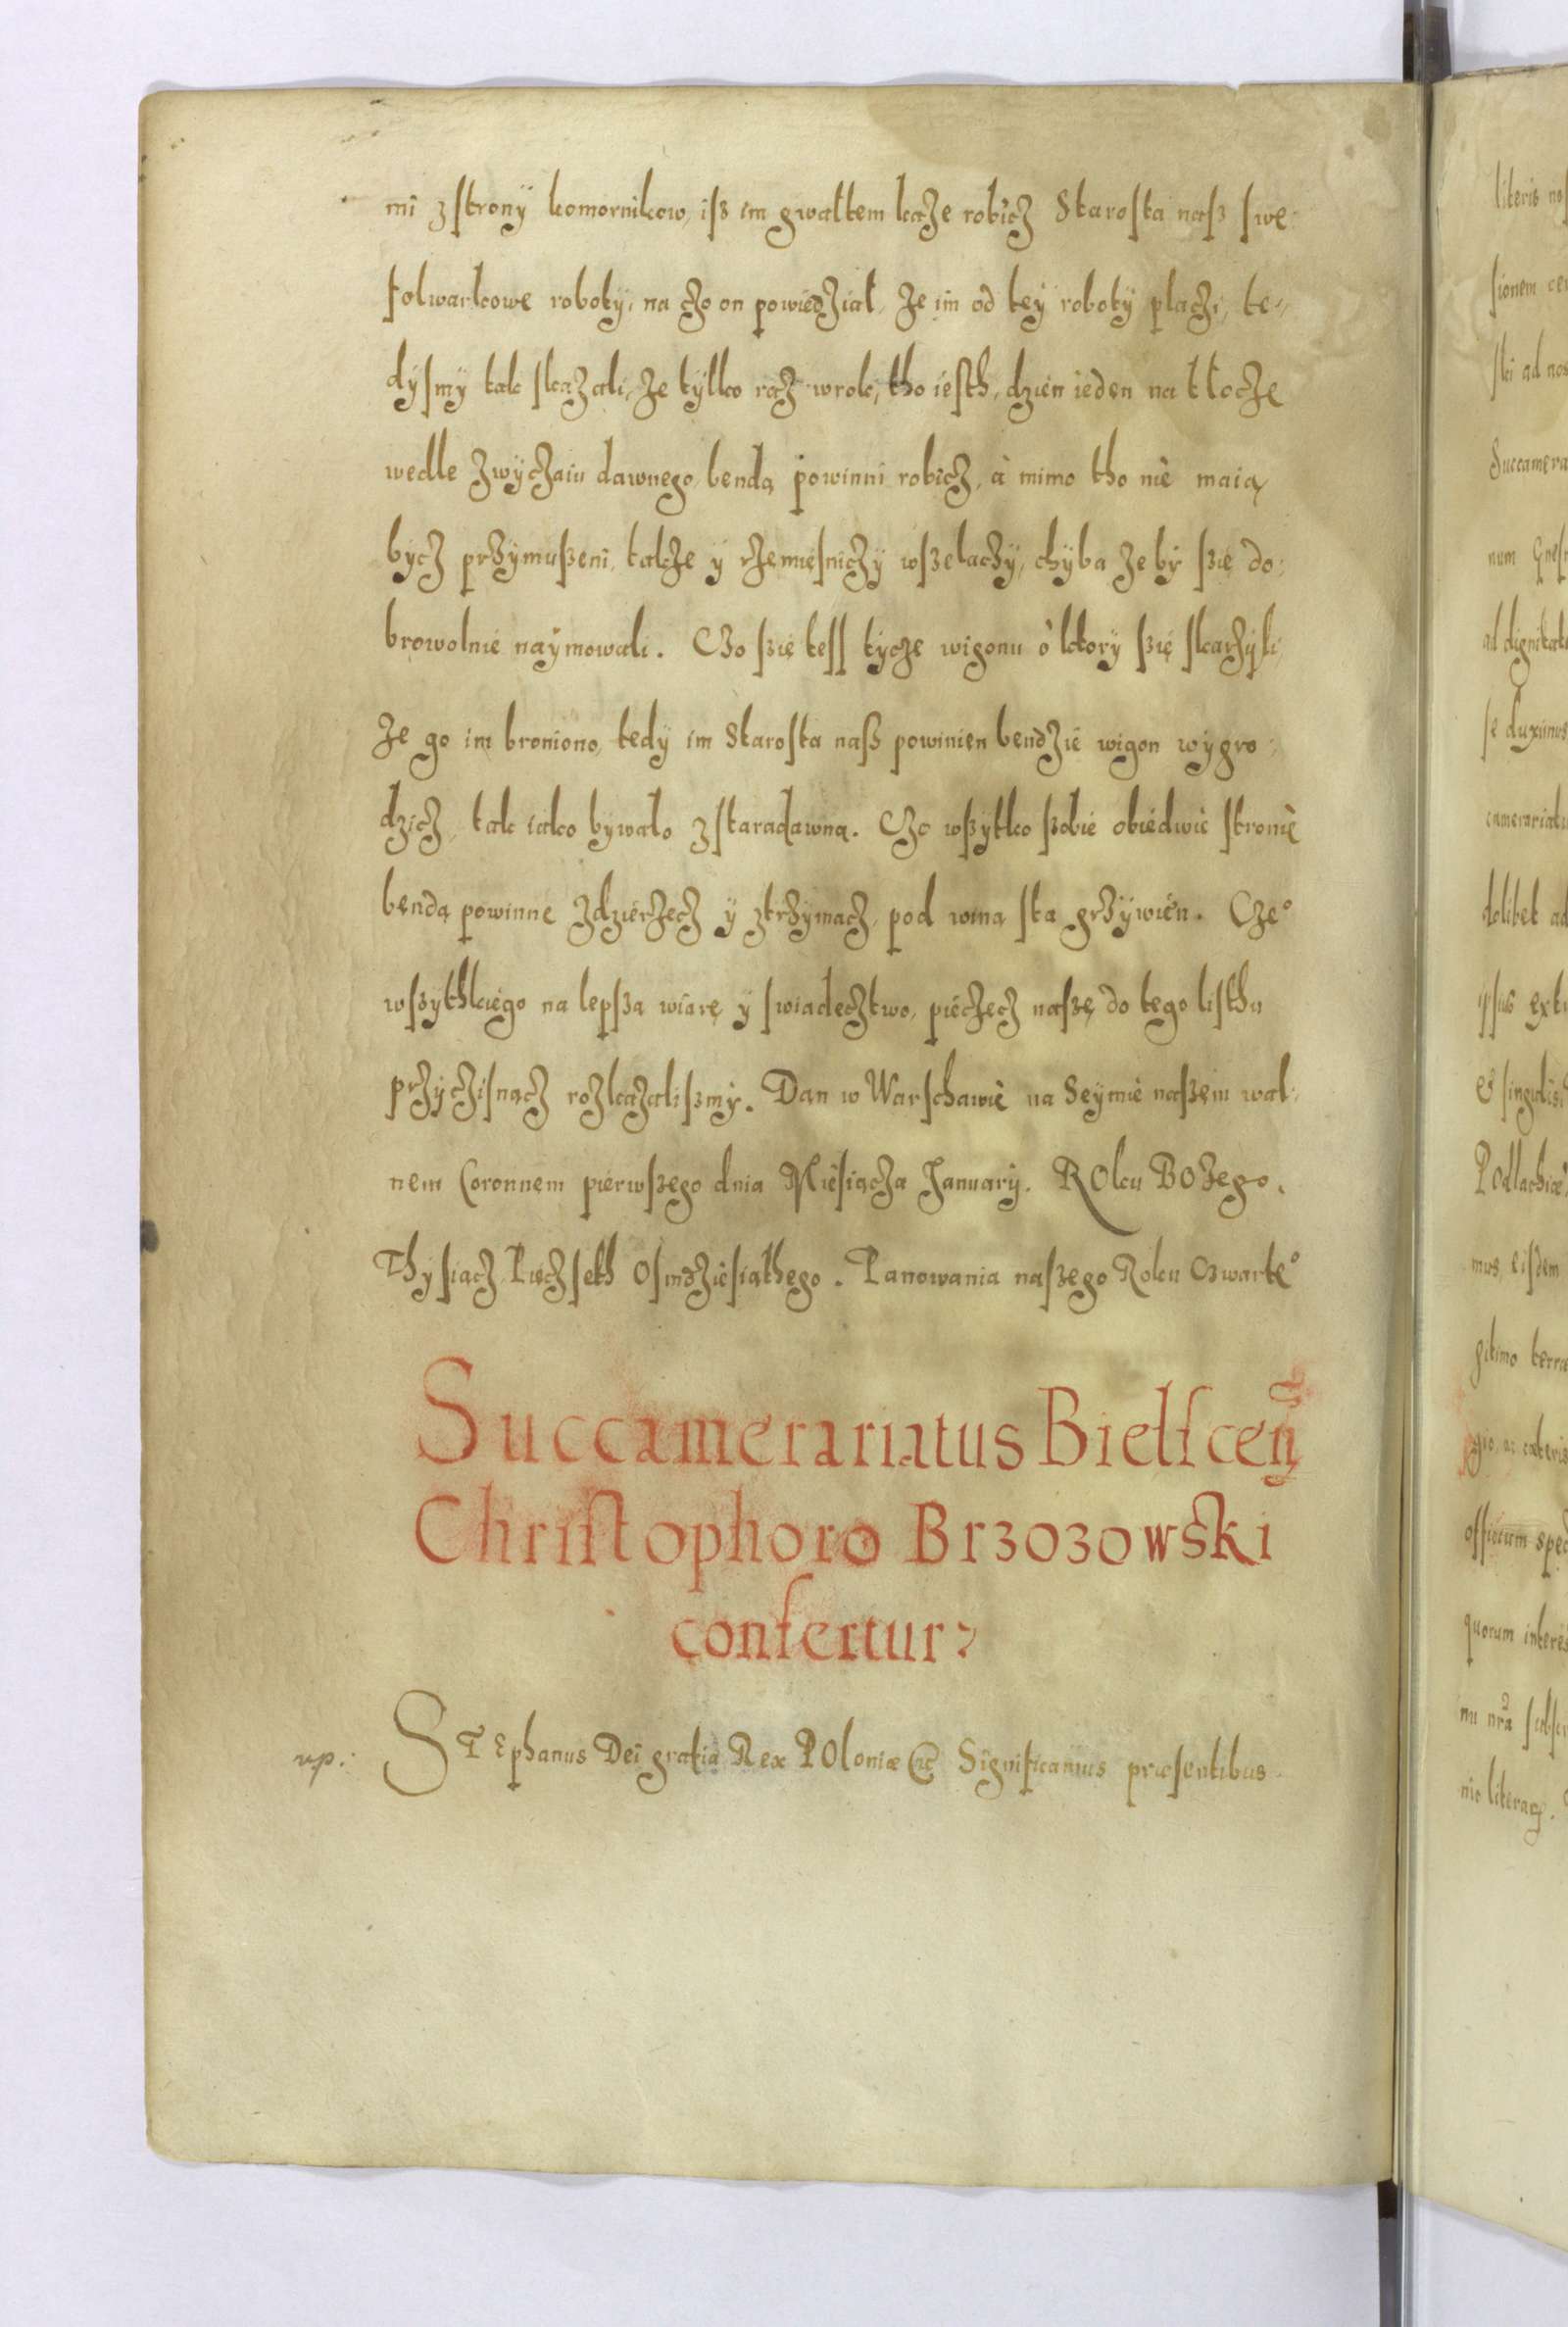 mi z strony komornikow, isz im gwałtem kaze robicz Starosta nasz swe
folwarkowe roboty, na czo on powiedział, ze im od tey roboty płaczi, te-
dysmy tak skazali, ze tylko raz w rok, tho iesth, dzien ieden na tłocze
wedle zwyczaiu dawnego benda powinni robicz, à mimo tho nie maią
bycz przymuszeni, takze y rzemiesniczy wszelaczy, chyba zeby szie do-
browolnie naymowali. Czo szie tess tycze wigonu o ktory szie skarzyli,
ze go im broniono, tedy im Starosta nasz powinien bendzie wigon wygro-
dzicz, tak iako bywało z staradawna. Czo wszytko szobie obiedwie stronie
bendą powinne zdzierzecz y ztrzymacz, pod winą sta grzywien. Cze°
wszythkiego na lepszą wiarę y swiadecztwo, pieczecz naszę do tego listhu
przyczisnącz rozkazaliszmy. Dan w Warschawie na Seymie naszem wal-
nem Coronnem pierwszego dnia Miesiącza January. ROku BOzego.
Thysiącz Pięczseth Osmdziesiathego. Panowania naszego Roku Czwarte°
Succamerariatus Bielscen̄
Christophoro Brzozowski
confertur
STEphanus Dei gratia Rex POloniæ etc Significamus præsentibus
literis nos
sionem
ski ad nos
Succamera
num
ad dignitate
se duximus
camerariatu
ipsius
et singulis
POdlachiæ
mus, eisdem
gitimo terræ
gio, ac cæteris
officium
quorum
nu nrā
nio literarꝶ.